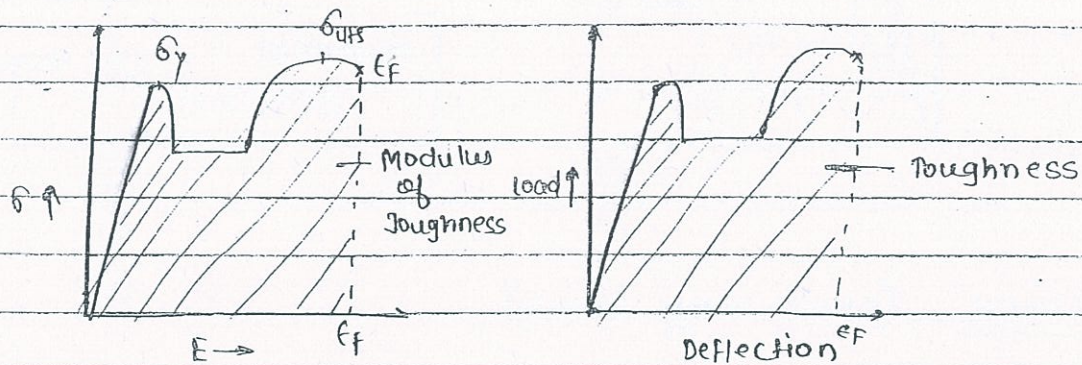 σy
σuts
εF
σ ↑
Modulus
of
Toughness
E →
εf
load ↑
Toughness
Deflection
eF